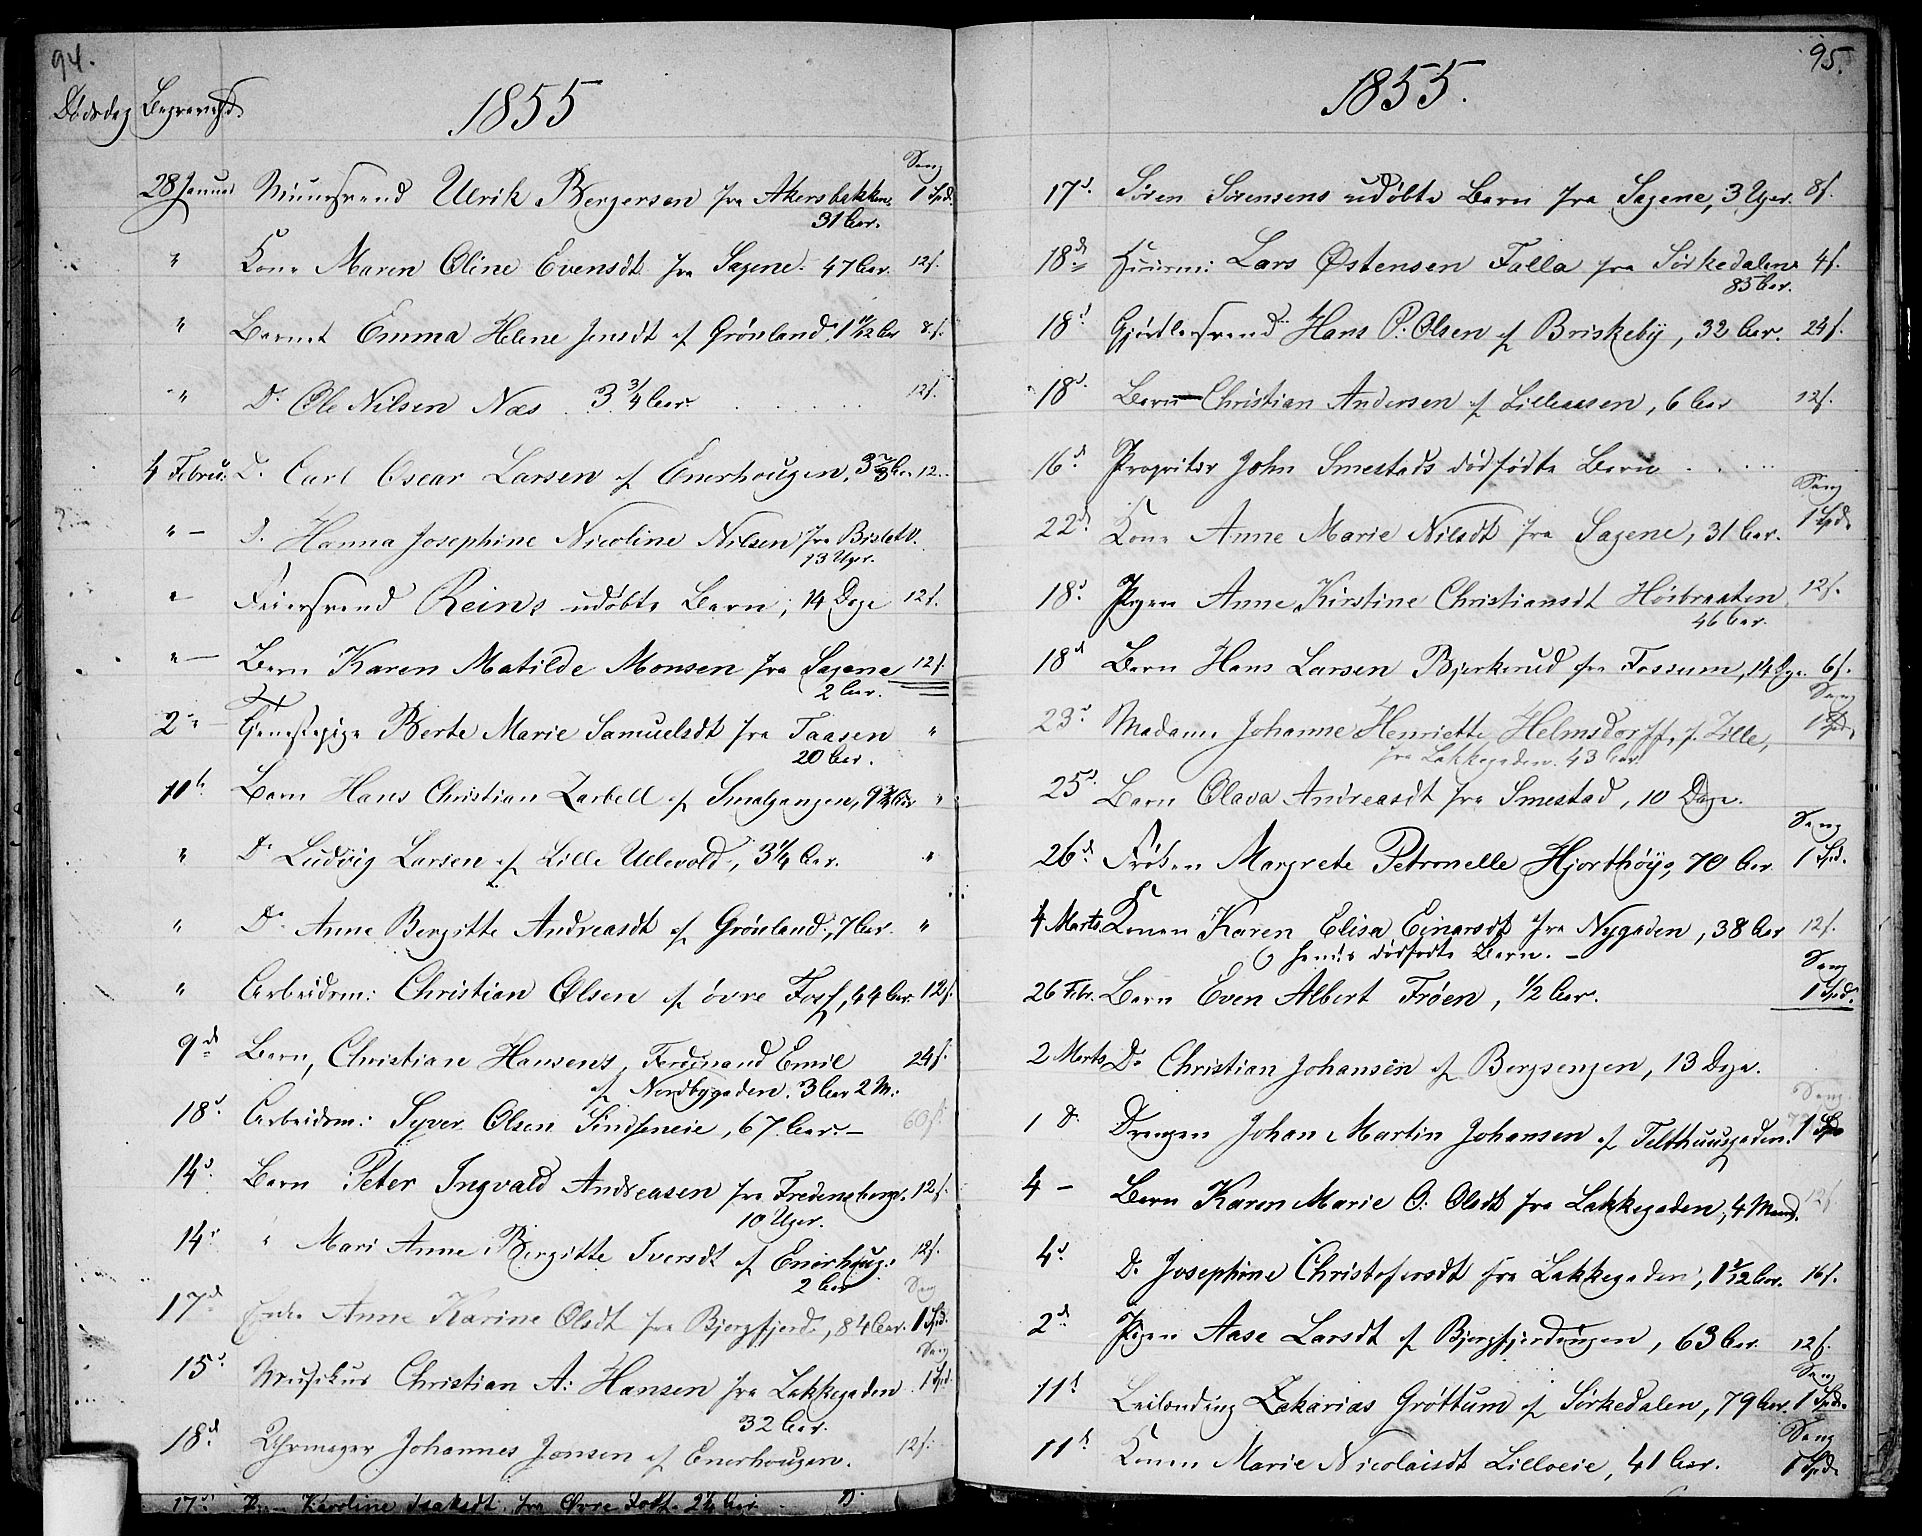 94.
Dødsdag Begravelsd.
1855
Sang
28 Januar Muursvend Ulrik Bergersen fra Akersbakken, 1 Spd.
31 Aar.
" Kone Maren Oline Evensdt fra Sagene. 47 Aar. 12 s.
" Barnet Emma Helene Jensdt af Grønland, 1 11/12 Aar 8 s.
" Do Ole Nilsen Næs . 3 3/4 Aar. 12 s.
4 Februar. D. Carl Oscar Larsen af Enerhougen, 3 2/3 Aar 12.
" — D. Hanna Josephine Nicoline Nilsen fra Bisletv.
13 Uger.
" Feiersvend Reins udøbte Barn, 14 Dage 12 s.
" — Barn Karen Matilde Monsen fra Sagene 12 s.
2 Aar.
2 " — Tjenestepige Berte Marie Samuelsdt fra Taasen "
20 Aar.
11te Barn Hans Christian Zarbell af Smalgangen, 9 3/4 Aar "
" Do Ludvig Larsen af Lille Ullevold, 3 1/4 Aar. "
" Do Anne Bergitte Andreasdt af Grønland, 7 Aar. "
" Arbeidsm: Christian Olsen af øvre Foss, 44 Aar 12 s.
9d Barn, Christian Hansens, Ferdinand Emil 24 s.
af Nordbygaden. 3 Aar 2 M:
18d. Arbeidsm: Syver Olsen Sinseneie, 67 Aar. — 60 s.
14d. Barn Peter Ingvald Andreasen fra Fredensborg. 12 s.
10 Uger.
14d " Mari Anne Bergitte Iversdt af Enerhoug: 12 s.
2 Aar
Sang
17d Enke Anne Karine Olsdt fra Bjergfjerd., 84 Aar. 1 Spd.
Sang
15d. Musikus Christian A: Hansen fra Lakkegaden 1 Spd.
32 Aar.
18d Uhrmager Johannes Jonsen af Enerhougen. 12 s.
17d Karoline Isaksdt. fra Øvre Foss. 2 1/4 Aar.
95.
1855.
17d. Søren Sørensens udøbte Barn fra Sagene, 3 Uger. 8 s.
18d Huusm: Lars Østensen Falla fra Sørkedalen 4 s.
83 Aar.
18d Gjørtlersvend Hans P. Olsen af Briskeby, 32 Aar. 24 s.
18d. Barn Christian Andersen af Lilleaasen, 6 Aar 12 s.
16d. Propritær John Smestads dødfødte Barn
Sang
22d. Kone Anne Marie Nilsdt fra Sagene, 31 Aar. 1 Spd.
18d. Pigen Anne Kirstine Christiansdt Høibraaten 12 s.
46 Aar.
18d Barn Hans Larsen Bjerkerud fra Fossum, 14 Dge. 6 s.
Sang
23d. Madame Johanne Henriette Helmsdorff, f. Lille, 1 Spd.
fra Lakkegaden. 43 Aar.
25d. Barn Olava Andreasdt fra Smestad, 10 Dage.
Sang
26d Frøken Margrete Petronelle Hjorthøy, 70 Aar 1 Spd.
4 Marts Konen Karen Elisa Einarsdt fra Nygaden, 38 Aar 12 s.
& hendes dødfødte Barn. —
Sang
26 Febr. Barn Even Albert Frøen, 1/2 Aar. 1 Spd.
2 Marts Do Christian Johansen af Bergsengen, 13 Dage.
Sang
1 d. Drengen Johan Martin Johansen af Telthuusgaden. 1 Spd
4 — Barn Karen Marie O: Olsdt fra Lakkegaden, 4 Maand. 12 s.
4d D. Josephine Christofersdt fra Lakkegaden, 1 5/12 Aar. 16 s.
2d Pigen Aase Larsdt af Bjergfjerdingen, 63 Aar. 12 s.
Sang
11d Leilænding Zakarias Grøttum af Sørkedalen, 79 Aar. 1 Spd.
Sang
11d. Konen Marie Nicolaisdt Lilloeie, 41 Aar. 1 Spd.